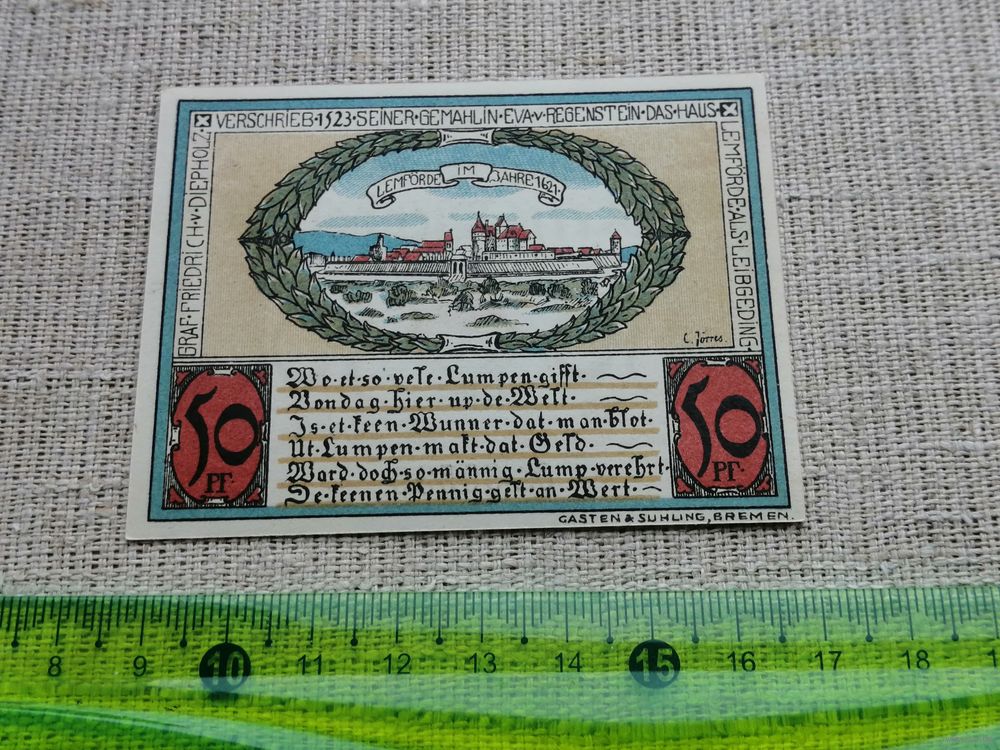 GRAF·FRIEDRICH·v·DIEPHOLZ·
VERSCHRIEB·1523·SEINER·GEMAHLIN·EVA·v·REGENSTEIN·DAS·HAUS·
LEMFÖRDE·ALS·LEIBGEDING·
LEMFÖRDE IM JAHRE 1621·
C. Jörres.
50
PF·
Wo·et·so·vele·Lumpen·gifft·
Vondag·hier·up·de·Welt·
Is·et·keen·Wunner·dat·man·blot·
Ut·Lumpen·makt·dat·Geld·
Ward·doch·so·männig·Lump·verehrt·
De·keenen·Pennig·gelt·an·Wert·
50
PF·
GASTEN & SUHLING, BREMEN.
8 9 10 11 12 13 14 15 16 17 18